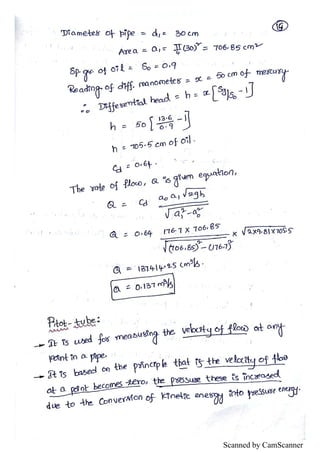 14
Diameter of pipe = d₁ = 30 cm
Area = a₁ = π/4 (30)² = 706.85 cm²
Sp. gr. of oil = S₀ = 0.9
Reading of diff. manometer = x = 50 cm of mercury
∴ Differential head = h = x [Sg/S₀ - 1]
h = 50 [13.6/0.9 - 1]
h = 705.5 cm of oil.
Cd = 0.64.
The rate of flow, Q is given equation,
Q = Cd a₀ a₁ √2gh / √a₁² - a₀²
Q = 0.64 176.7 X 706.85 / √(706.85)² - (176.7)² × √2×981×705.5
Q = 137414.25 cm³/s.
Q = 0.137 m³/s
Pitot-tube:
→ It is used for measuring the velocity of flow at any
point in a pipe.
→ It is based on the principle that if the velocity of flow
at a point becomes zero, the pressure there is increased
due to the conversion of kinetic energy into pressure energy.
Scanned by CamScanner